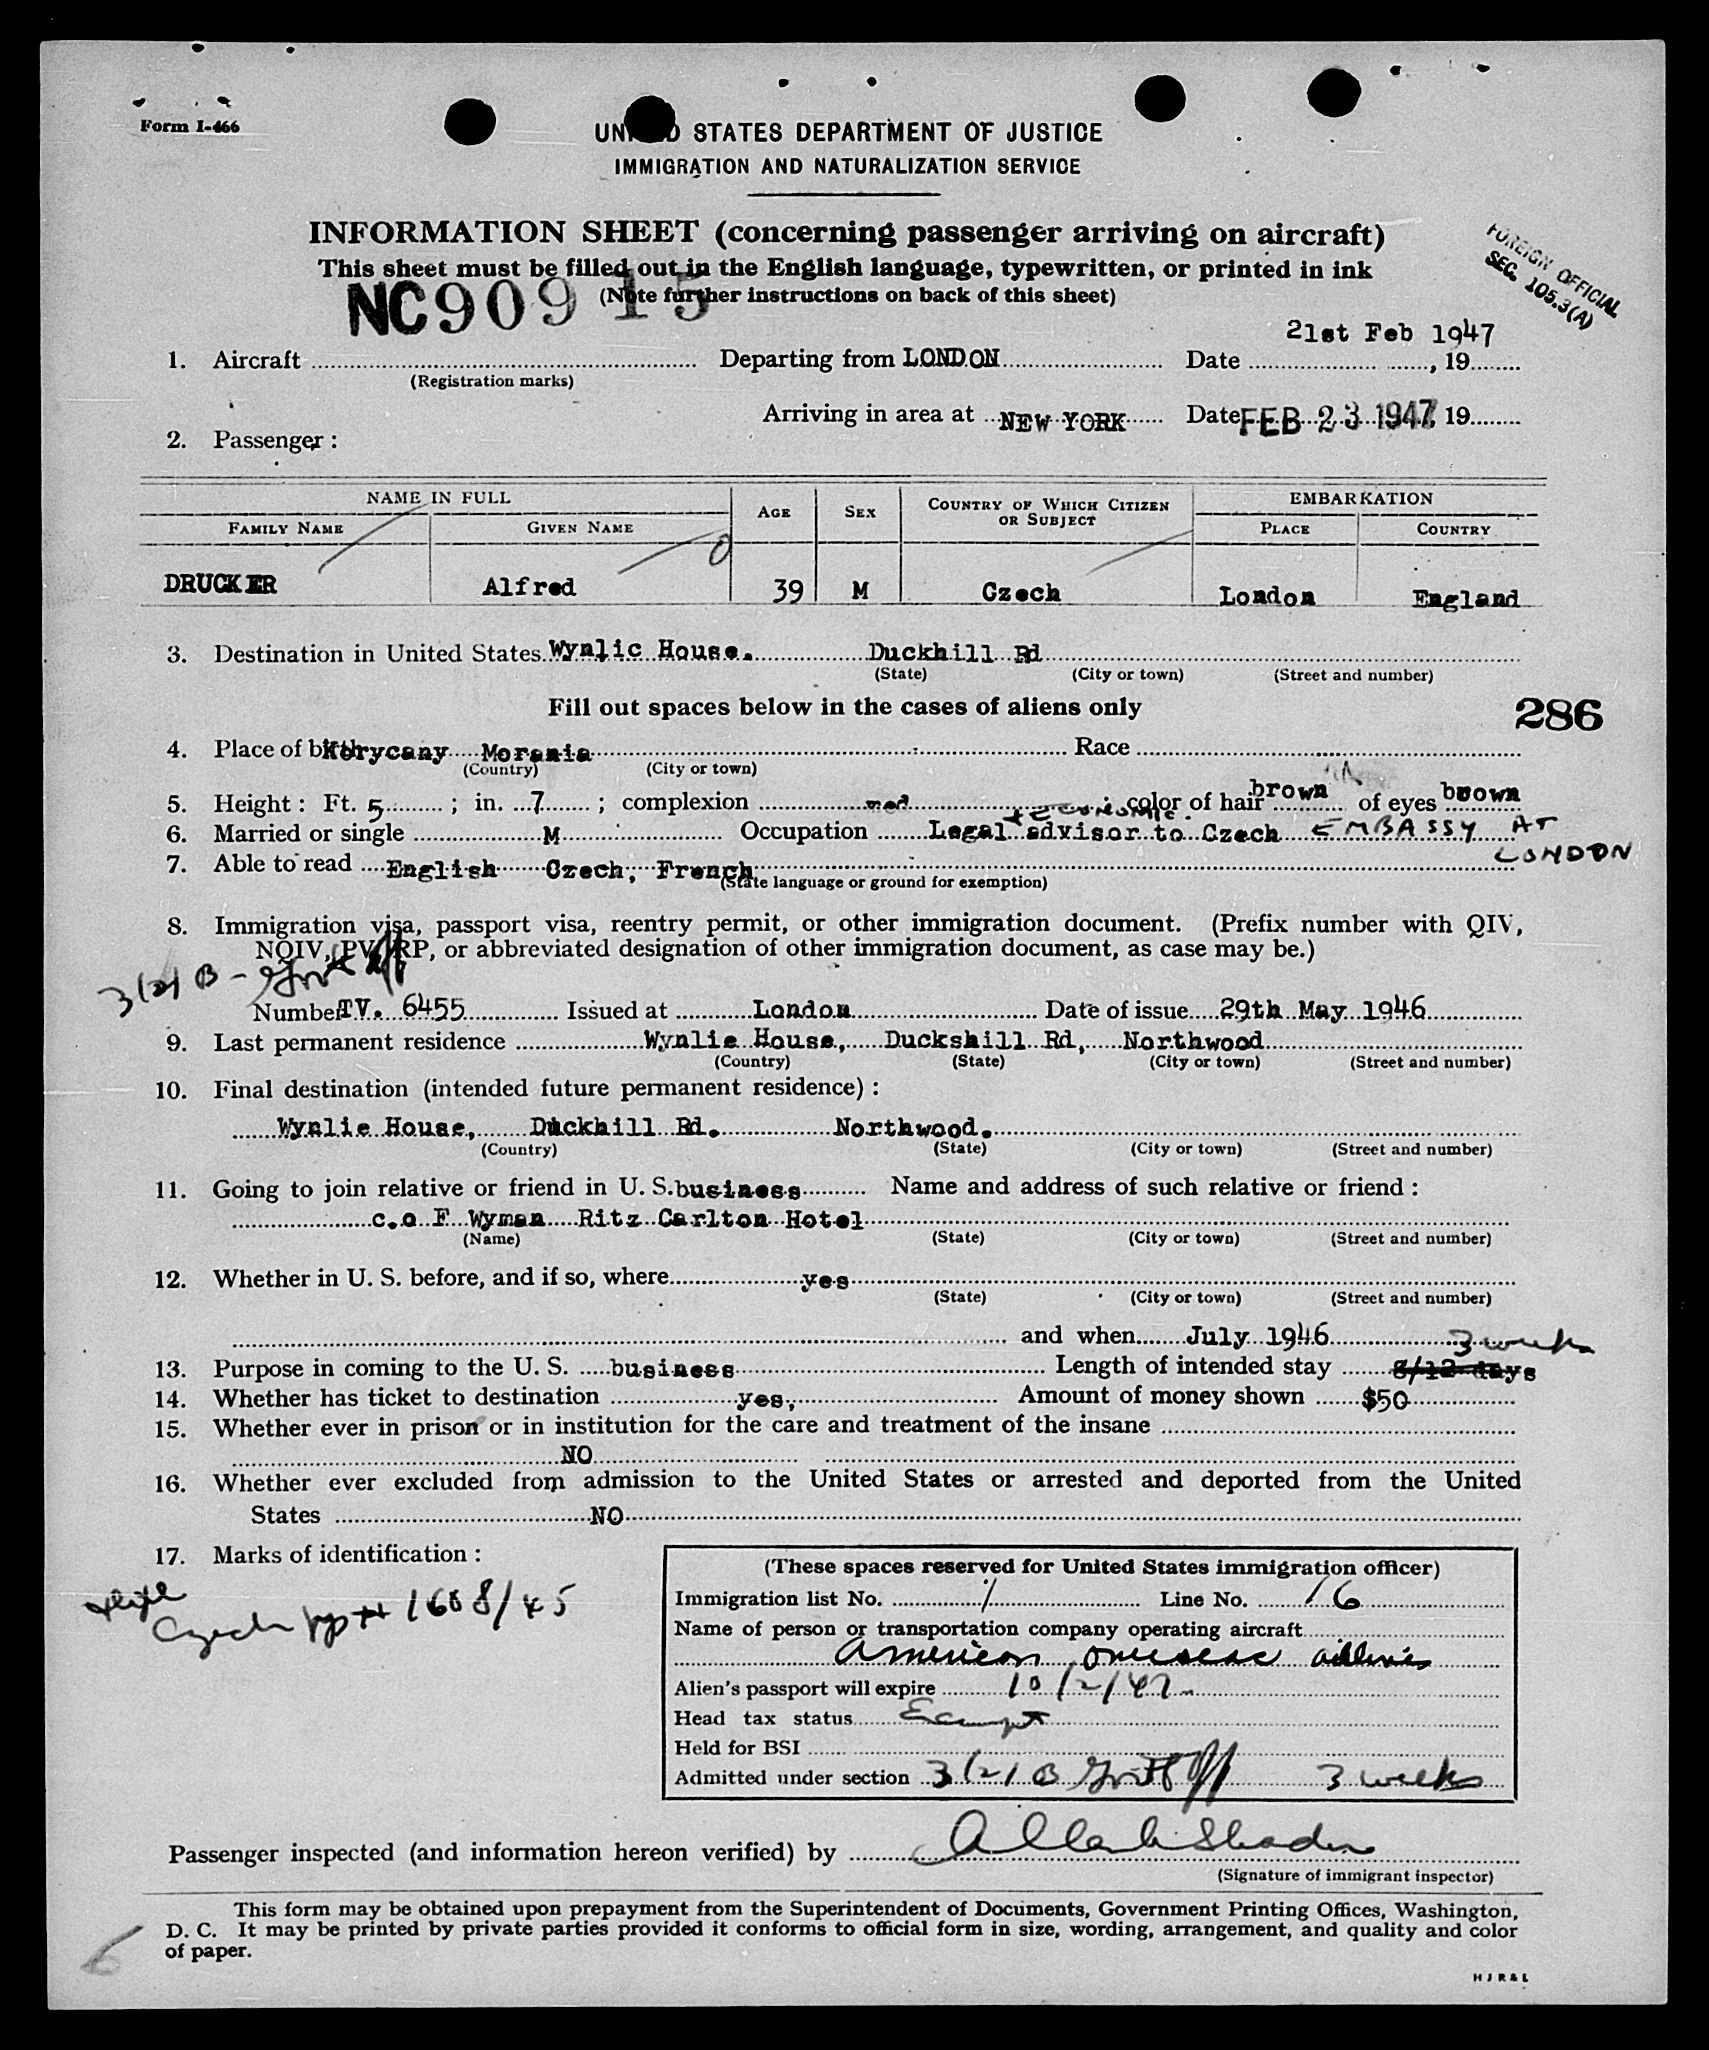 Form I-466
UNITED STATES DEPARTMENT OF JUSTICE
IMMIGRATION AND NATURALIZATION SERVICE
INFORMATION SHEET (concerning passenger arriving on aircraft)
This sheet must be filled out in the English language, typewritten, or printed in ink
(Note further instructions on back of this sheet)
FOREIGN OFFICIAL
SEC. 105.3(A)
NC90915
21st Feb 1947
1. Aircraft Departing from LONDON Date , 19
(Registration marks)
Arriving in area at NEW YORK Date FEB 23 1947, 19
2. Passenger:
NAME IN FULL AGE SEX COUNTRY OF WHICH CITIZEN OR SUBJECT EMBARKATION
FAMILY NAME GIVEN NAME PLACE COUNTRY
DRUCKER Alfred 39 M Czech London England
3. Destination in United States Wynlic House. Duckhill Rd
(State) (City or town) (Street and number)
Fill out spaces below in the cases of aliens only
286
4. Place of birth Korycany Morania Race
(Country) (City or town)
5. Height: Ft. 5 ; in. 7 ; complexion med ; color of hair brown of eyes brown
+ ECONOMIC.
6. Married or single M Occupation Legal advisor to Czech EMBASSY AT
LONDON
7. Able to read English Czech, French
(State language or ground for exemption)
8. Immigration visa, passport visa, reentry permit, or other immigration document. (Prefix number with QIV,
NQIV, PV, RP, or abbreviated designation of other immigration document, as case may be.)
3(2) B - Govt Off
Number TV. 6455 Issued at London Date of issue 29th May 1946
9. Last permanent residence Wynlie House, Duckshill Rd, Northwood
(Country) (State) (City or town) (Street and number)
10. Final destination (intended future permanent residence):
Wynlie House, Duckhill Rd. Northwood.
(Country) (State) (City or town) (Street and number)
11. Going to join relative or friend in U. S. business Name and address of such relative or friend:
c.o F Wyman Ritz Carlton Hotel
(Name) (State) (City or town) (Street and number)
12. Whether in U. S. before, and if so, where yes
(State) (City or town) (Street and number)
and when July 1946
3 weeks
13. Purpose in coming to the U. S. business Length of intended stay 8/12 days
14. Whether has ticket to destination yes, Amount of money shown $50
15. Whether ever in prison or in institution for the care and treatment of the insane
NO
16. Whether ever excluded from admission to the United States or arrested and deported from the United
States NO
17. Marks of identification:
Czech ppt 1608/45
(These spaces reserved for United States immigration officer)
Immigration list No. 1 Line No. 16
Name of person or transportation company operating aircraft
American Overseas Airlines
Alien's passport will expire 10/2/47
Head tax status Exempt
Held for BSI
Admitted under section 3(2) B Govt Off 3 weeks
Passenger inspected (and information hereon verified) by
(Signature of immigrant inspector)
This form may be obtained upon prepayment from the Superintendent of Documents, Government Printing Offices, Washington,
D. C. It may be printed by private parties provided it conforms to official form in size, wording, arrangement, and quality and color
of paper.
6
H J R & L